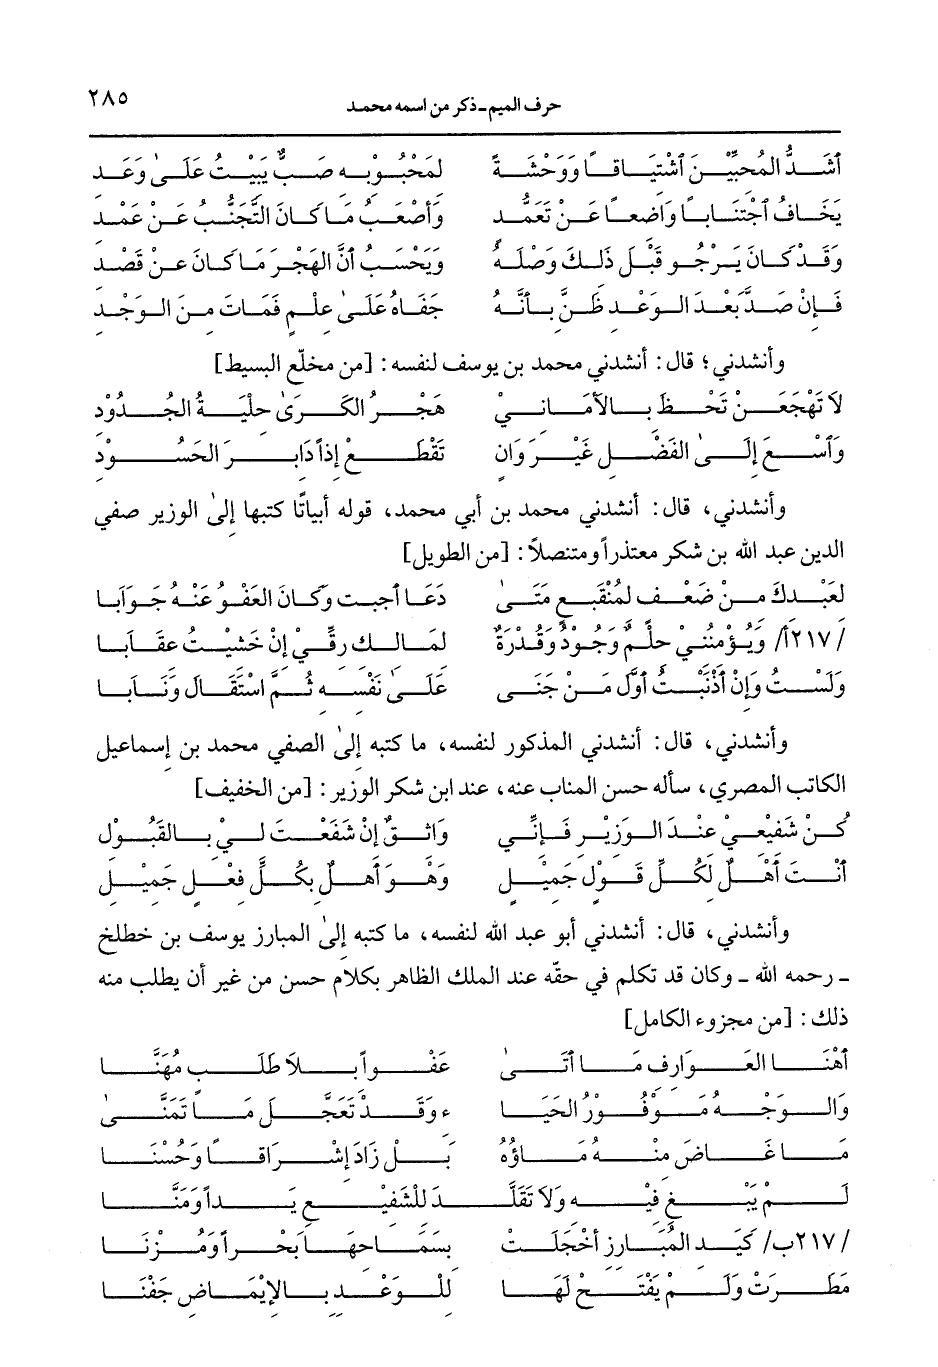 حرف الميم - ذكر من اسمه محمد ٢٨٥
أَشَدُّ المُحبِّيْنَ أشْتِيَاقاً وَوَحْشَةً لمَحْبُوْبِهِ صَبٌّ يَبِيْتُ عَلَىٰ وَعْدِ
يَخَافُ اجْتنَاباً وَاضعاً عَنْ تَعَمُّدٍ وَأصْعَبُ مَا كَانَ التَّجَنُّبُ عَنْ عَمْدِ
وَقَدْ كَانَ يَرْجُو قَبْلَ ذَلكَ وَصْلَهُ وَيَحْسَبُ أنَّ الهَجْرَ مَا كَانَ عنْ قَصْدِ
فَإنْ صَدَّ بَعْدَ الوَعْدِ ظَنَّ بأنَّهُ جَفَاهُ عَلَىٰ علْمٍ فَمَاتَ منَ الوَجْدِ
وأنشدني؛ قال: أنشدني محمد بن يوسف لنفسه: [من مخلّع البسيط]
لاَ تَهْجَعَنْ تَحْظَ بالأَمَانيْ هَجْرُ الكَرَىٰ حلْيَةُ الجُدُوْدِ
وَأسْعَ إلَىٰ الفَضْلِ غَيْرَ وَانِ تَقْطَعْ إذاً دَابرَ الحَسُوْدِ
وأنشدني، قال: أنشدني محمد بن أبي محمد، قوله أبياتًا كتبها إلىٰ الوزير صفي
الدين عبد الله بن شكر معتذراً ومتنصلاً: [من الطويل]
لعَبْدكَ منْ ضَعْفٍ لمُنْقَبِعٍ مَتَىٰ دَعَا أجبت وَكَانَ العَفْوُ عَنْهُ جَوَابَا
/٢١٧أ/ وَيُؤْمنُنيْ حلْمٌ وَجُودٌ وَقُدْرَةٌ لمَالك رِقِّيْ إنْ خَشيْتُ عقَابَا
وَلَسْتُ وَإنْ أذْنَبْتُ أوَّلَ مَنْ جَنَى عَلَىٰ نَفْسه ثُمَّ اسْتَقَالَ وَتَابَا
وأنشدني، قال: أنشدني المذكور لنفسه، ما كتبه إلىٰ الصفي محمد بن إسماعيل
الكاتب المصري، سأله حسن المناب عنه، عند ابن شكر الوزير: [من الخفيف]
كُنْ شَفيْعيْ عنْدَ الوَزيْرِ فَإنِّي وَاثقٌ إنْ شَفَعْتَ ليْ بالقَبُوْلِ
أنْتَ أهْلٌ لكُلِّ قَوْلٍ جَميْلٍ وَهْوَ أهْلٌ بكُلِّ فعْلٍ جَميْلِ
وأنشدني، قال: أنشدني أبو عبد الله لنفسه، ما كتبه إلىٰ المبارز يوسف بن خطلخ
- رحمه الله - وكان قد تكلم في حقّه عند الملك الظاهر بكلام حسن من غير أن يطلب منه
ذلك: [من مجزوء الكامل]
أهْنَا العَوَارِف مَا أتَىٰ عَفْواً بلاَ طَلَبٍ مُهَنَّا
وَالوَجْهُ مَوْفُوْرُ الحَيَا ءِ وَقَدْ تَعَجَّلَ مَا تَمَنَّىٰ
مَا غَاضَ منْهُ مَاؤُهُ بَلْ زَادَ إشْرَاقاً وَحُسْنَا
لَمْ يَبْغِ فيْه وَلاَ تَقَلَّدَ للْشَفيْعِ يَداً وَمَنَّا
/٢١٧ب/ كَيَدِ المُبَارِزِ أخْجَلَتْ بسَمَاحهَا بَحْراً وَمُزْنَا
مَطَرَتْ وَلَمْ يَفْتَحْ لَهَا للْوَعْدِ بالإيْمَاضِ جَفْنَا